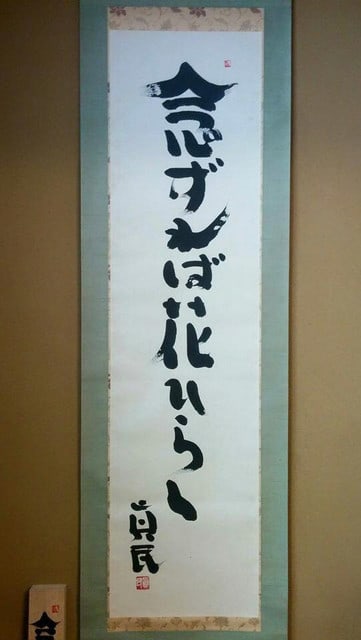 念ずれば花ひらく
真民